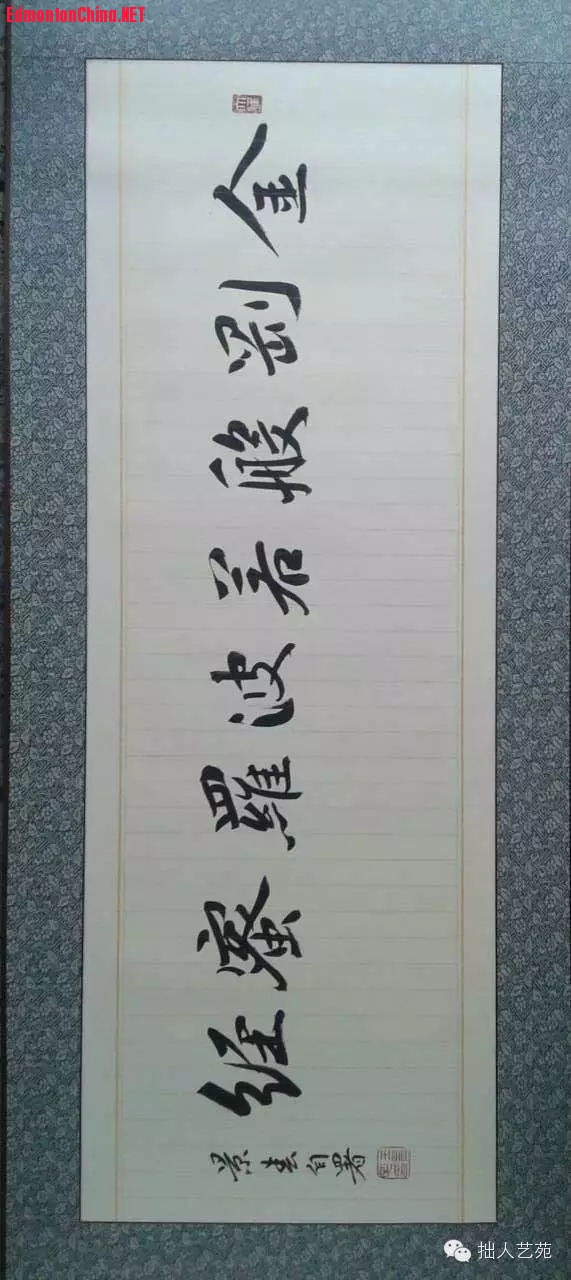 EdmontonChina.NET
金剛般若波羅蜜经
景春自署
拙人艺苑